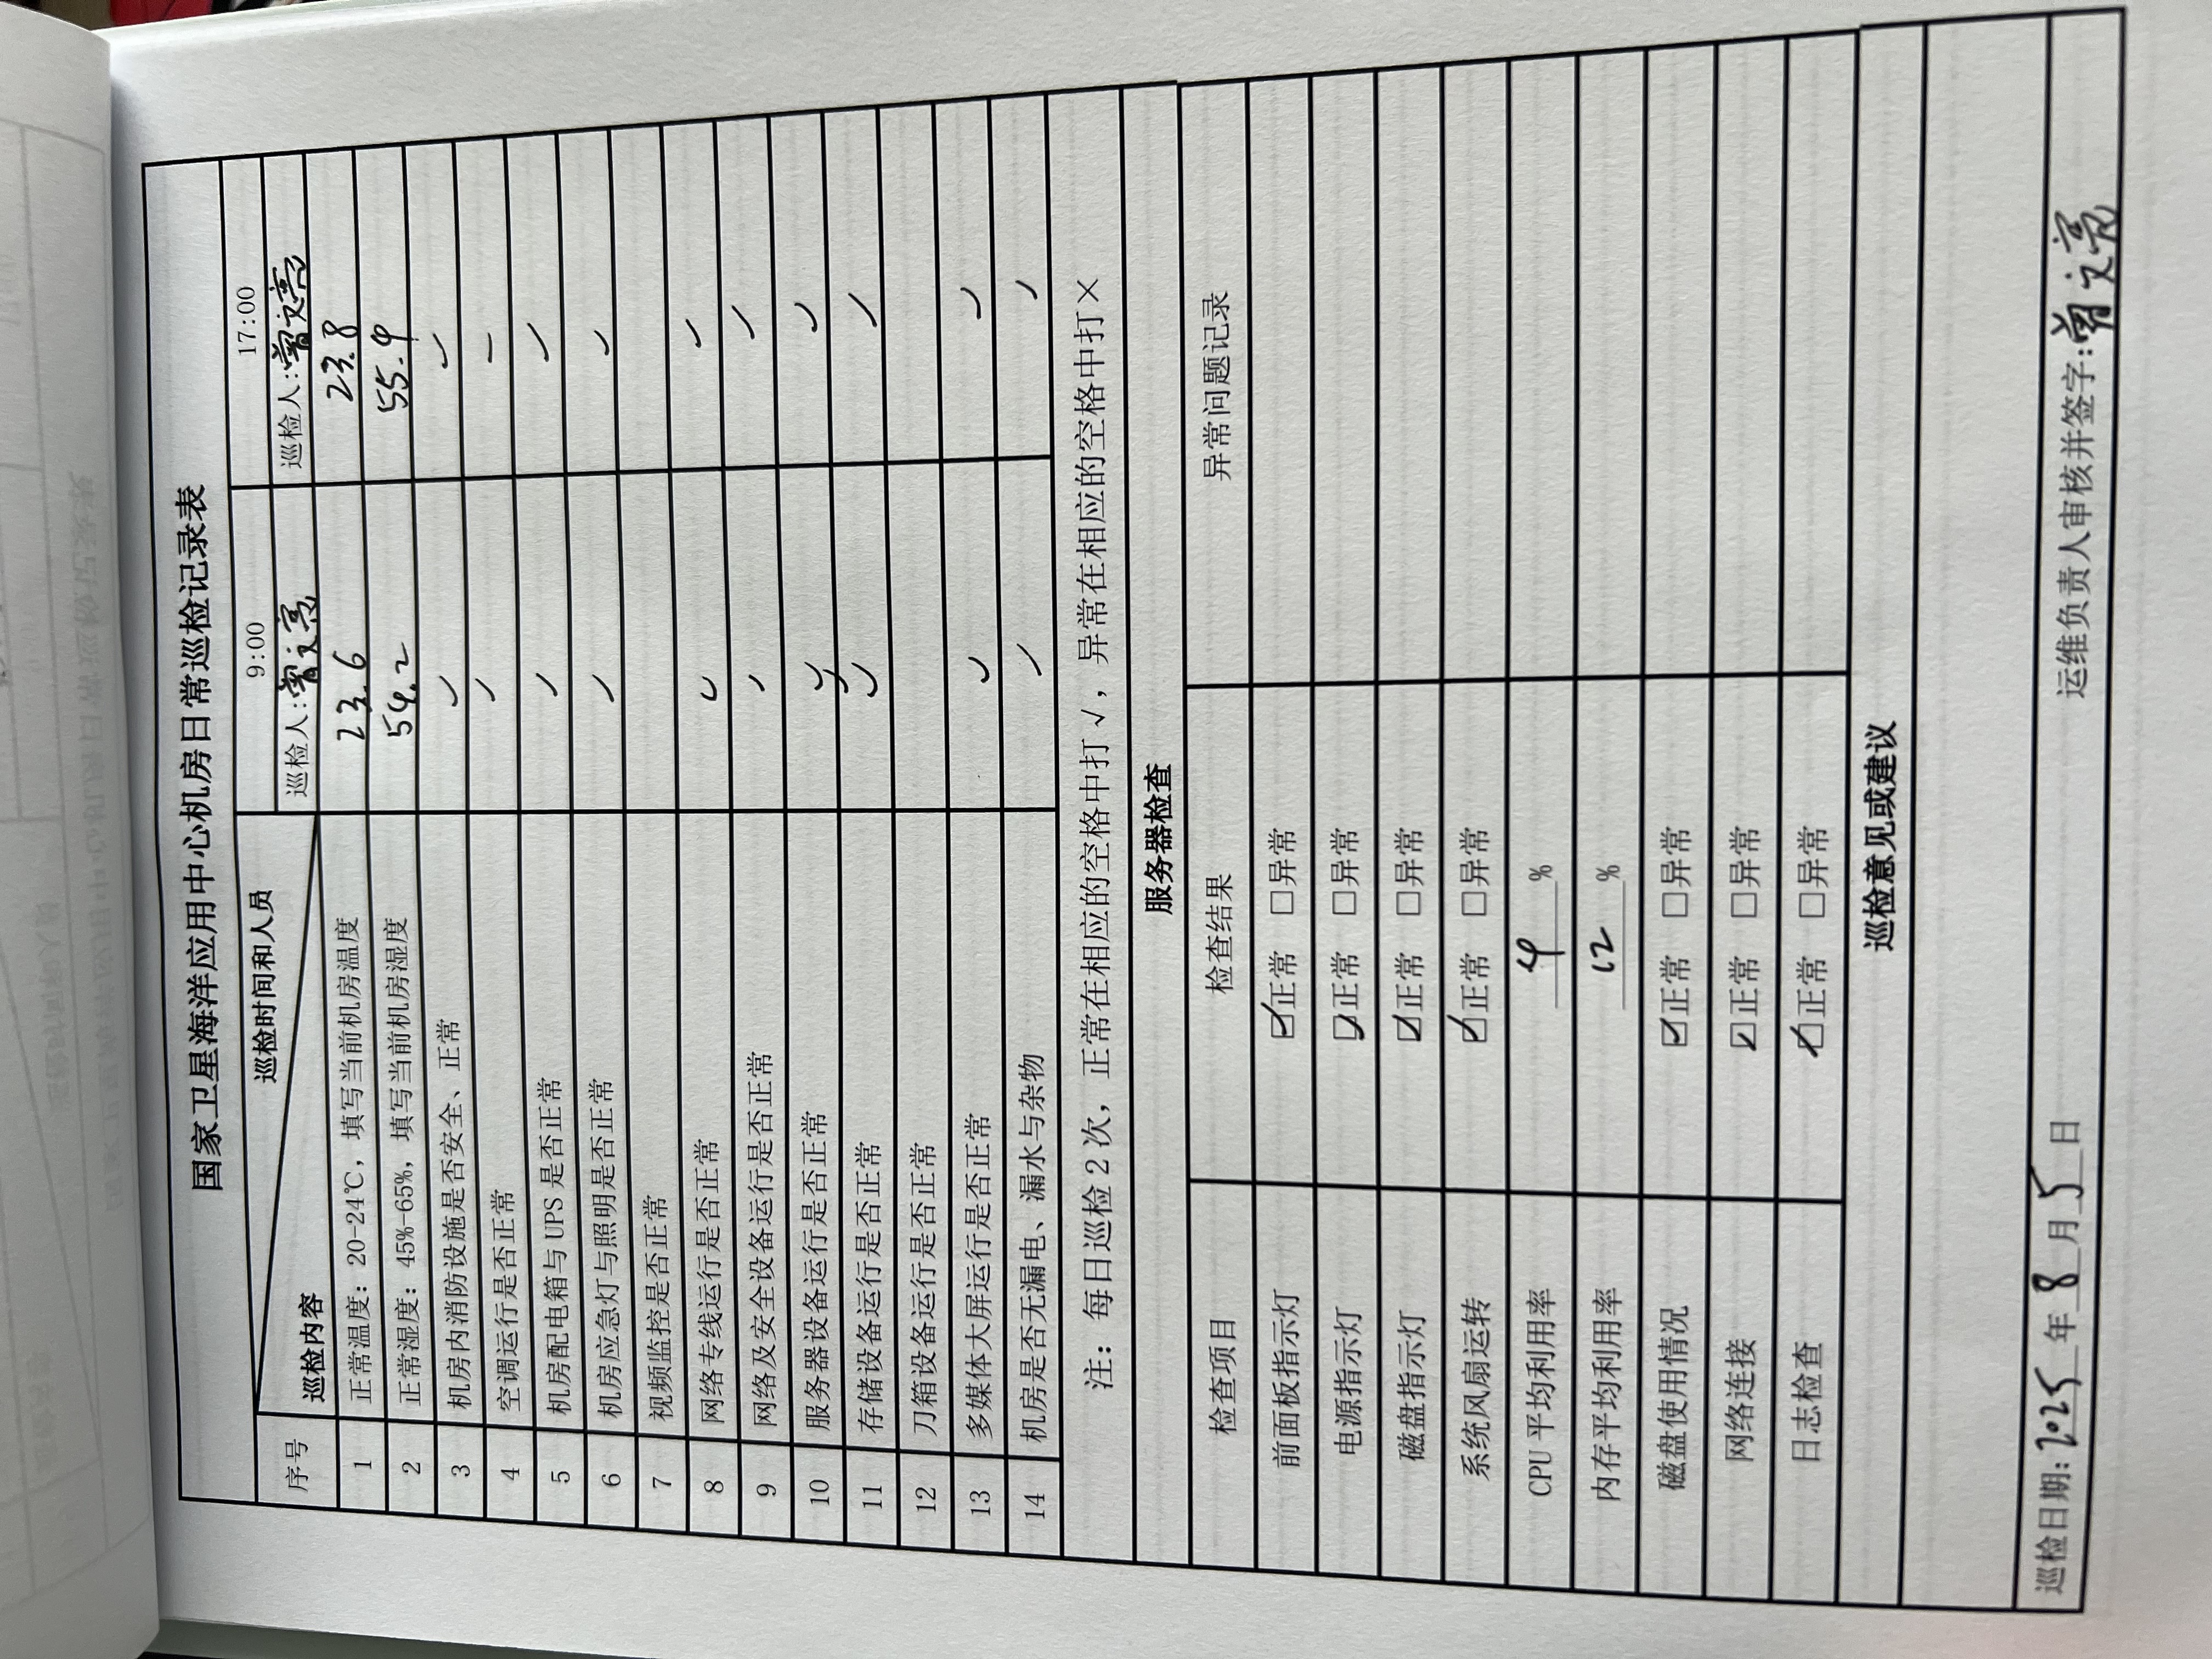 国家卫星海洋应用中心机房日常巡检记录表
巡检时间和人员 9:00 17:00
序号 巡检内容 巡检人:曾文亮 巡检人:曾文亮
1 正常温度：20-24℃，填写当前机房温度 23.6 23.8
2 正常湿度：45%-65%，填写当前机房湿度 54.2 55.9
3 机房内消防设施是否安全、正常 ✓ ✓
4 空调运行是否正常 ✓ ✓
5 机房配电箱与 UPS 是否正常 ✓ ✓
6 机房应急灯与照明是否正常 ✓ ✓
7 视频监控是否正常
8 网络专线运行是否正常 ✓ ✓
9 网络及安全设备运行是否正常 ✓ ✓
10 服务器设备运行是否正常 ✓ ✓
11 存储设备运行是否正常 ✓ ✓
12 刀箱设备运行是否正常
13 多媒体大屏运行是否正常 ✓ ✓
14 机房是否无漏电、漏水与杂物 ✓ ✓
注：每日巡检 2 次，正常在相应的空格中打 √，异常在相应的空格中打×
服务器检查
检查项目 检查结果 异常问题记录
前面板指示灯 ☑正常 □异常
电源指示灯 ☑正常 □异常
磁盘指示灯 ☑正常 □异常
系统风扇运转 ☑正常 □异常
CPU 平均利用率 4 %
内存平均利用率 12 %
磁盘使用情况 ☑正常 □异常
网络连接 ☑正常 □异常
日志检查 ☑正常 □异常
巡检意见或建议
巡检日期: 2025 年 8 月 5 日 运维负责人审核并签字:曾文亮